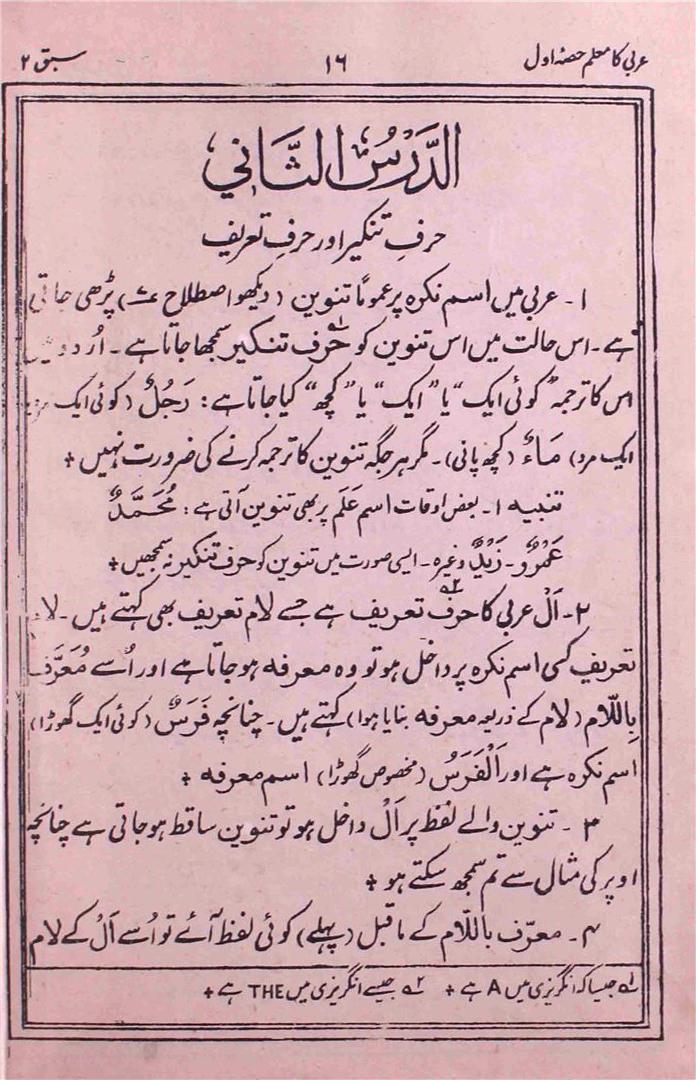 عربی کا معلم حصۂ اول ۱۶ سبق ۲
الدَّرْسُ الثَّانِي
حرفِ تنکیر اور حرفِ تعریف
۱۔ عربی میں اسم نکرہ پر عمومًا تنوین (دیکھو اصطلاح ) پڑھی جاتی
ہے۔ اس حالت میں اس تنوین کو حرف تنکیر ؎۱ سمجھا جاتا ہے۔ اُردو میں
اس کا ترجمہ ”کوئی ایک“ یا ”ایک“ یا ”کچھ“ کیا جاتا ہے: رَجُلٌ (کوئی ایک مرد یا
ایک مرد) مَاءٌ (کچھ پانی)۔ مگر ہر جگہ تنوین کا ترجمہ کرنے کی ضرورت نہیں +
تنبیہ ۱۔ بعض اوقات اسم عَلَم پر بھی تنوین آتی ہے: مُحَمَّدٌ
عَمْرٌو۔ زَیْدٌ وغیرہ۔ ایسی صورت میں تنوین کو حرف تنکیر نہ سمجھیں +
۲۔ اَلْ عربی کا حرف تعریف ؎۲ ہے جسے لام تعریف بھی کہتے ہیں۔ لام
تعریف کسی اسم نکرہ پر داخل ہو تو وہ معرفہ ہو جاتا ہے اور اُسے مُعَرَّف
بِاللَّام (لام کے ذریعہ معرفہ بنایا ہوا) کہتے ہیں۔ چنانچہ فَرَسٌ (کوئی ایک گھوڑا)
اسم نکرہ ہے اور اَلْفَرَسُ (مخصوص گھوڑا) اسم معرفہ +
۳۔ تنوین والے لفظ پر اَلْ داخل ہو تو تنوین ساقط ہو جاتی ہے چنانچہ
اوپر کی مثال سے تم سمجھ سکتے ہو +
۴۔ معرّف باللّام کے ماقبل (پہلے) کوئی لفظ آئے تو اُسے اَلْ کے لام
؎۱ جیسا کہ انگریزی میں A ہے + ؎۲ جیسے انگریزی میں THE ہے +